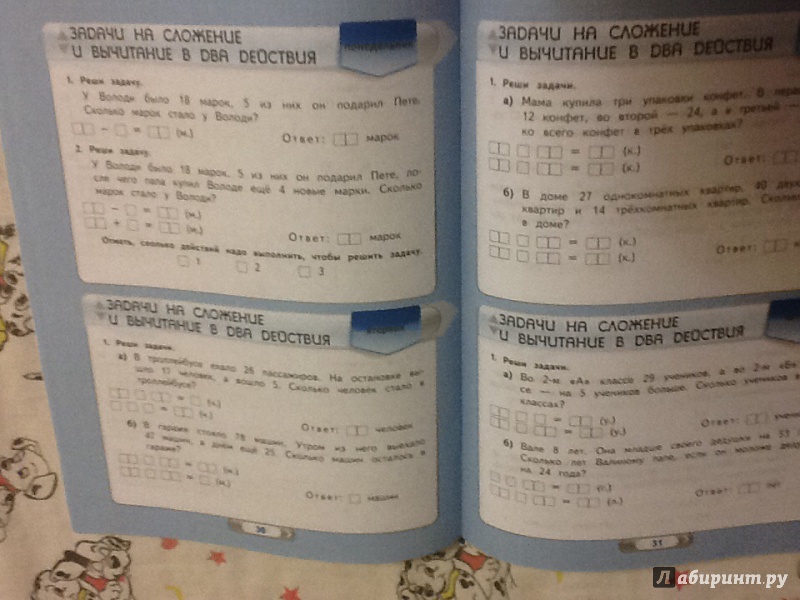 ЗАДАЧИ НА СЛОЖЕНИЕ
И ВЫЧИТАНИЕ В ДВА ДЕЙСТВИЯ
ПОНЕДЕЛЬНИК
1. Реши задачу.
У Володи было 18 марок, 5 из них он подарил Пете.
Сколько марок стало у Володи?
– = (м.)
Ответ: марок
2. Реши задачу.
У Володи было 18 марок, 5 из них он подарил Пете, по-
сле чего папа купил Володе ещё 4 новые марки. Сколько
марок стало у Володи?
– = (м.)
+ = (м.)
Ответ: марок
Отметь, сколько действий надо выполнить, чтобы решить задачу.
1 2 3
ЗАДАЧИ НА СЛОЖЕНИЕ
И ВЫЧИТАНИЕ В ДВА ДЕЙСТВИЯ
ВТОРНИК
1. Реши задачи.
а) В троллейбусе ехало 26 пассажиров. На остановке вы-
шло 17 человек, а вошло 5. Сколько человек стало в
троллейбусе?
= (ч.)
= (ч.)
Ответ: человек
б) В гараже стояло 78 машин. Утром из него выехало
47 машин, а днём ещё 25. Сколько машин осталось в
гараже?
= (м.)
= (м.)
Ответ: машин
30
ЗАДАЧИ НА СЛОЖЕНИЕ
И ВЫЧИТАНИЕ В ДВА ДЕЙСТВИЯ
1. Реши задачи.
а) Мама купила три упаковки конфет. В перв
12 конфет, во второй — 24, а в третьей —
ко всего конфет в трёх упаковках?
= (к.)
= (к.)
Ответ:
б) В доме 27 однокомнатных квартир, 40 двух
квартир и 14 трёхкомнатных квартир. Сколько
в доме?
= (к.)
= (к.)
Ответ:
ЗАДАЧИ НА СЛОЖЕНИЕ
И ВЫЧИТАНИЕ В ДВА ДЕЙСТВИЯ
1. Реши задачи.
а) Во 2-м «А» классе 29 учеников, а во 2-м «Б»
се — на 5 учеников больше. Сколько учеников в
классах?
= (у.)
= (у.)
Ответ: учени
б) Вале 8 лет. Она младше своего дедушки на 53
Сколько лет Валиному папе, если он моложе дедуш
на 24 года?
= (л.)
= (л.)
Ответ: лет
31
Лабиринт.ру